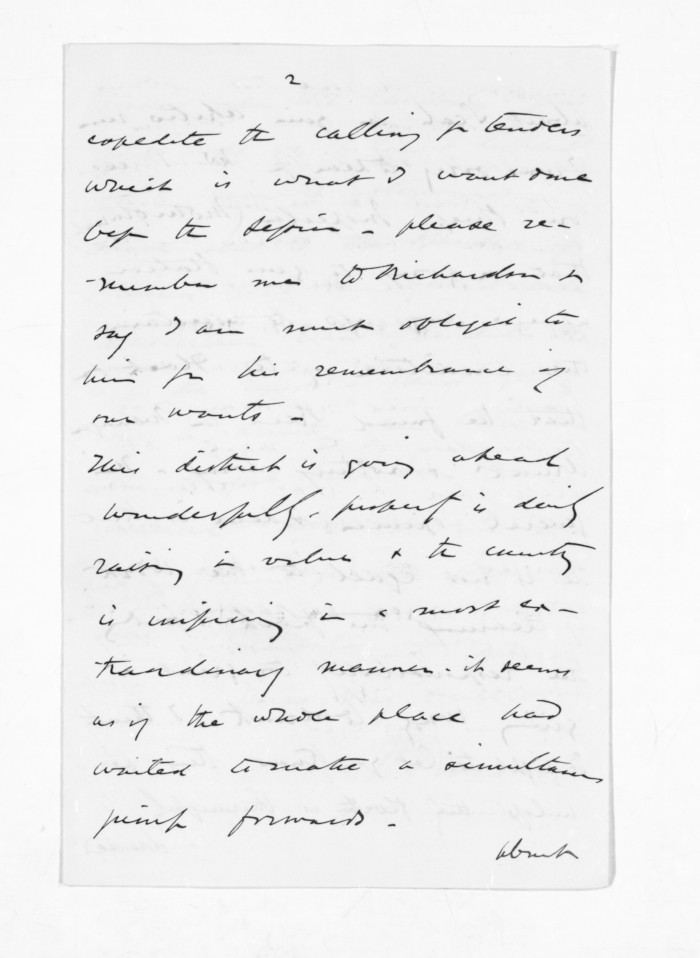 2
expedite the calling for tenders
which is what I want done
before the Session - please re-
-member me to Richardson &
say I am much obliged to
him for his remembrance of
our wants -
This district is going ahead
wonderfully. property is daily
raising in value & the country
is improving in a most ex-
traordinary manner - it seems
as if the whole place had
waited to make a simultaneous
jump forwards -
about